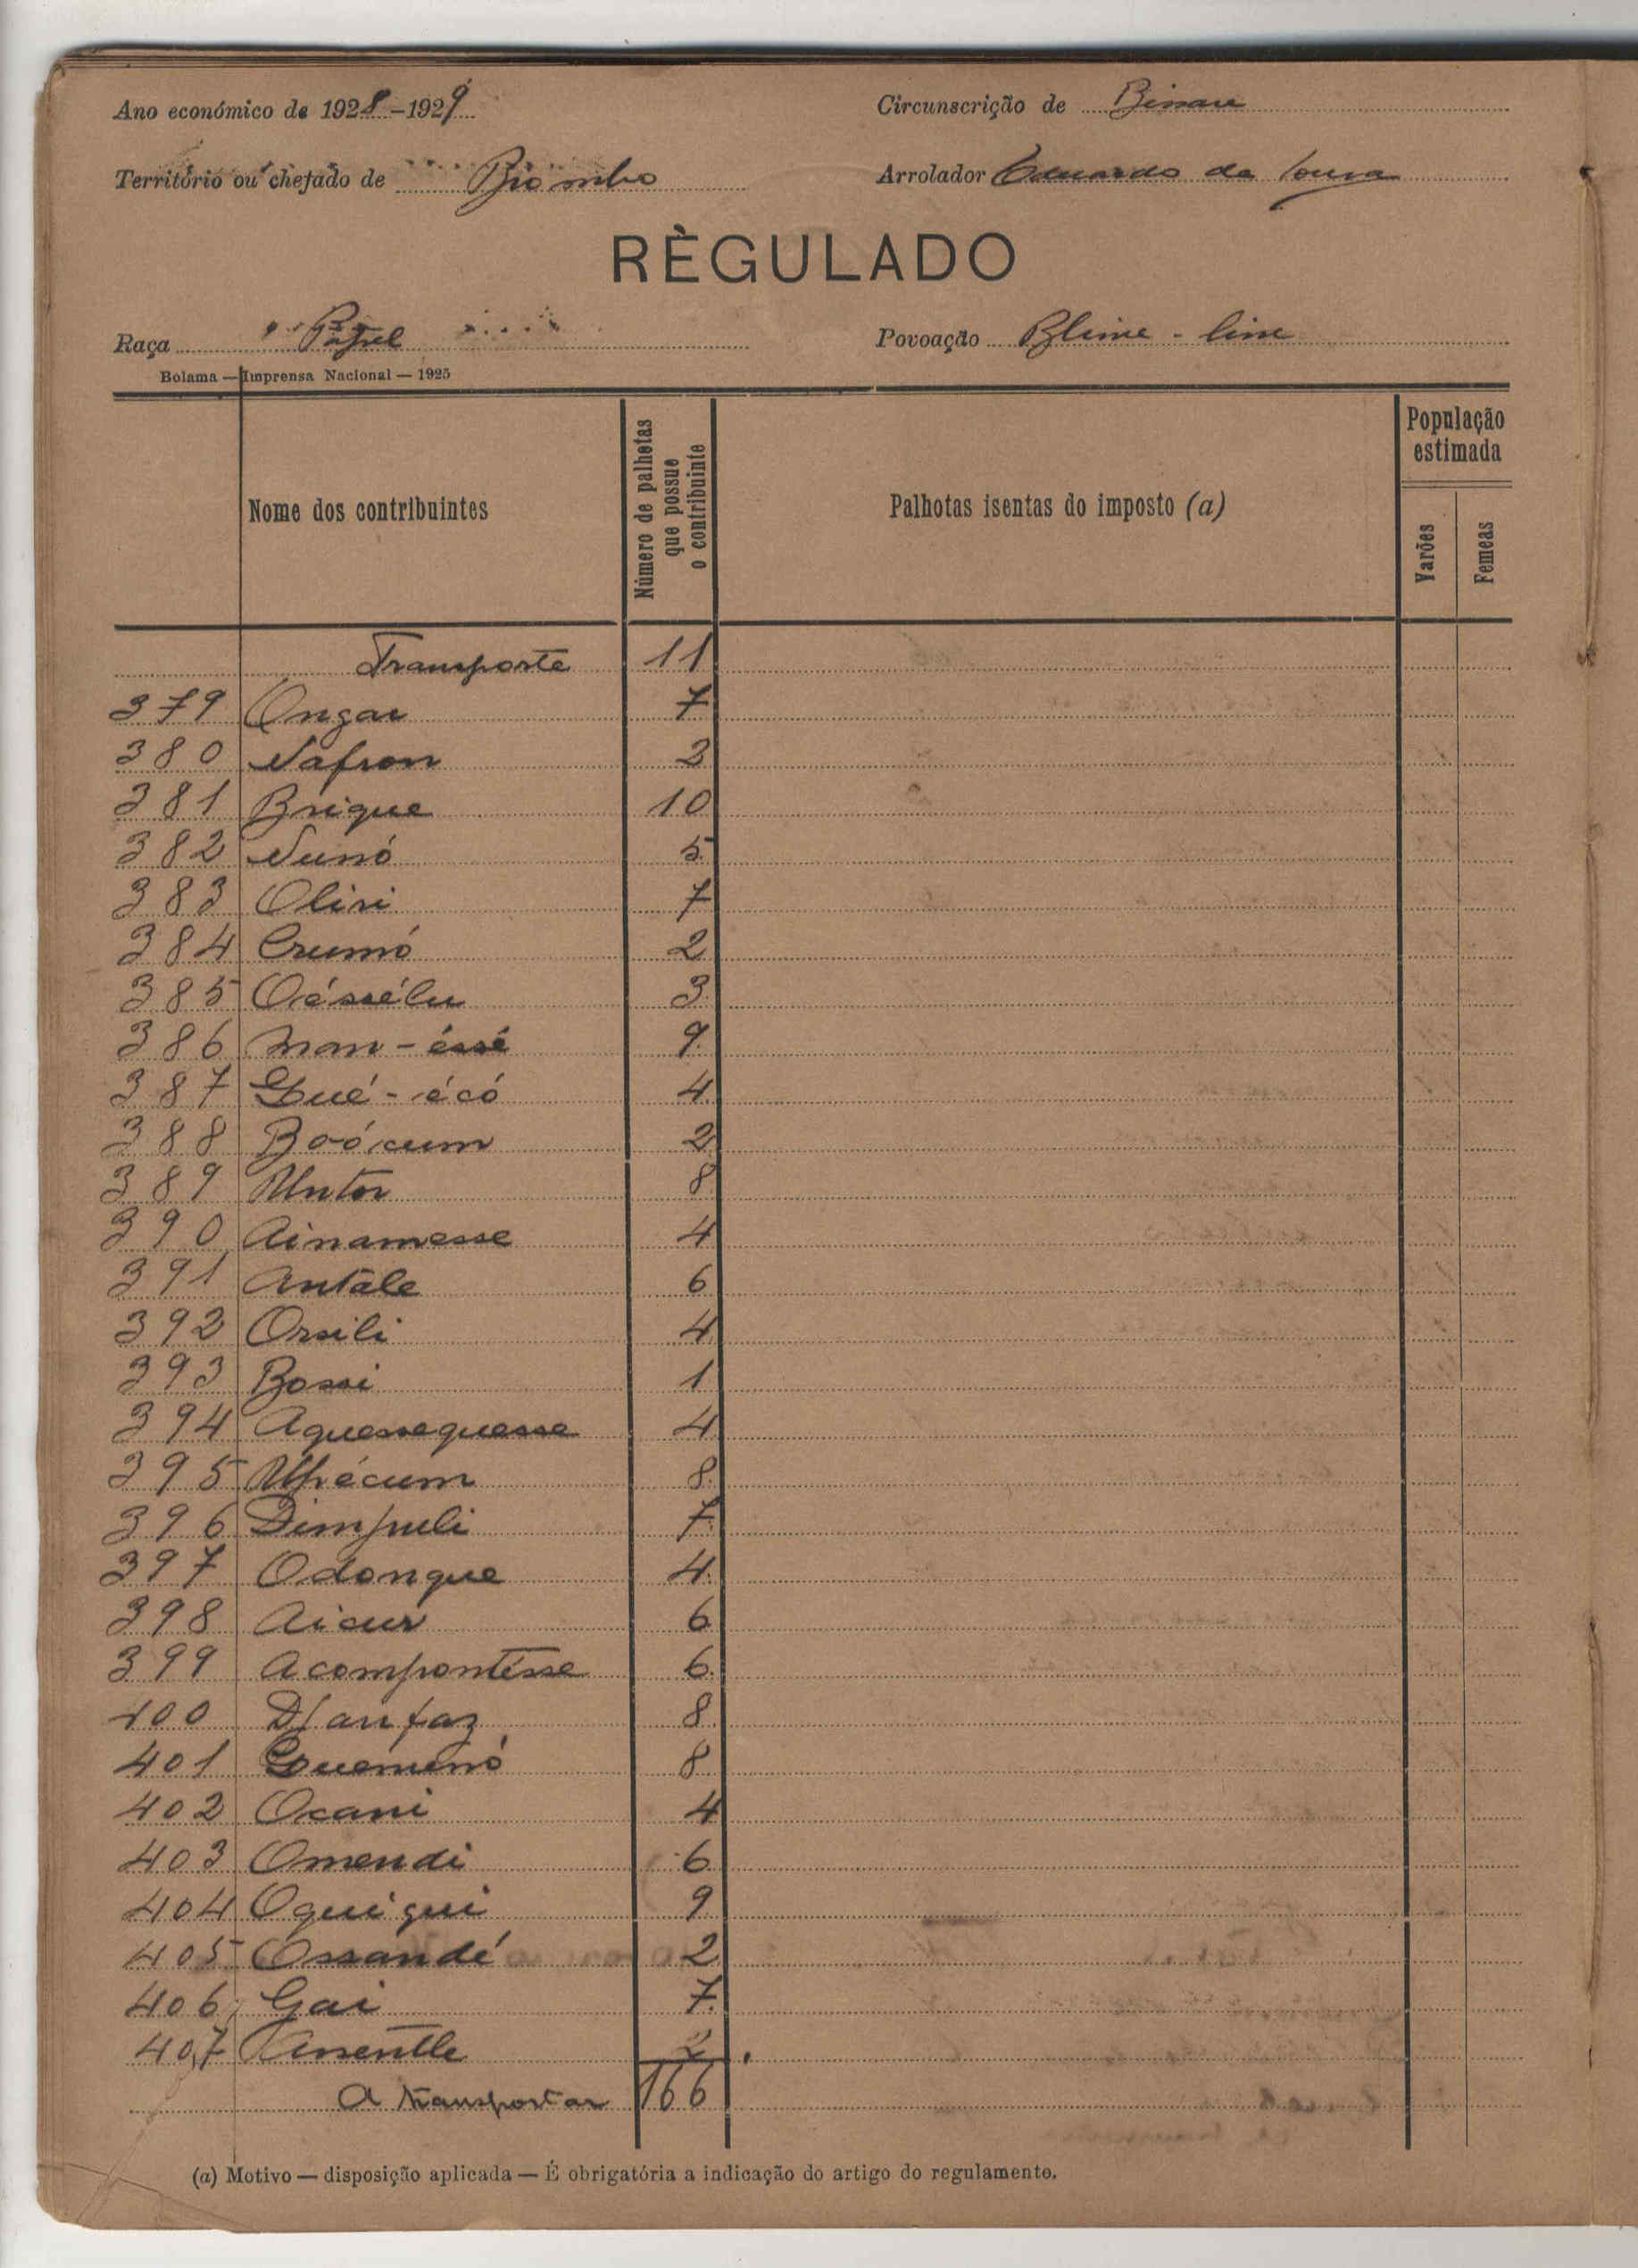 Ano económico de 1928-1929 Circunscrição de
Território ou chefado de Biombo Arrolador Eduardo de
RÈGULADO
Raça Papel Povoação Blime-lim
Bolama — Imprensa Nacional — 1925
Nome dos contribuintes
Número de palhotas que possue o contribuinte
Palhotas isentas do imposto (a)
População estimada
Varões
Femeas
Transporte 11
379 Ongar 7
380 Nafron 2
381 Brique 10
382 Nunó 5
383 Olivi 7
384 Crumó 2
385 Océssélu 3
386 Man-éssé 9
387 Gué-écó 4
388 Boócum 2
389 Untor 8
390 Ainamesse 4
391 Antále 6
392 Orsili 4
393 Bossi 1
394 Aquessequesse 4
395 8
396 Dimpuli 7
397 Odonque 4
398 Aicur 6
399 Acompontésse 6
400 Djanfaz 8
401 Gueminó 8
402 Ocani 4
403 Omendi 6
404 Oquiqui 9
405 Ossandé 2
406 Gai 7
407 2
A transportar 166
(a) Motivo — disposição aplicada — É obrigatória a indicação do artigo do regulamento.